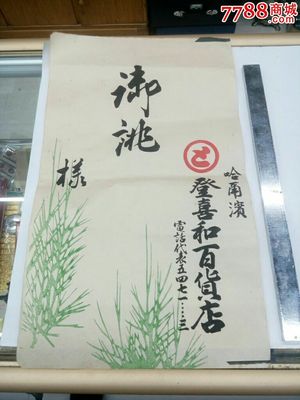 7788商城
.com
御誂
様
と
哈爾濱
登喜和百貨店
電話代表五四七一……三